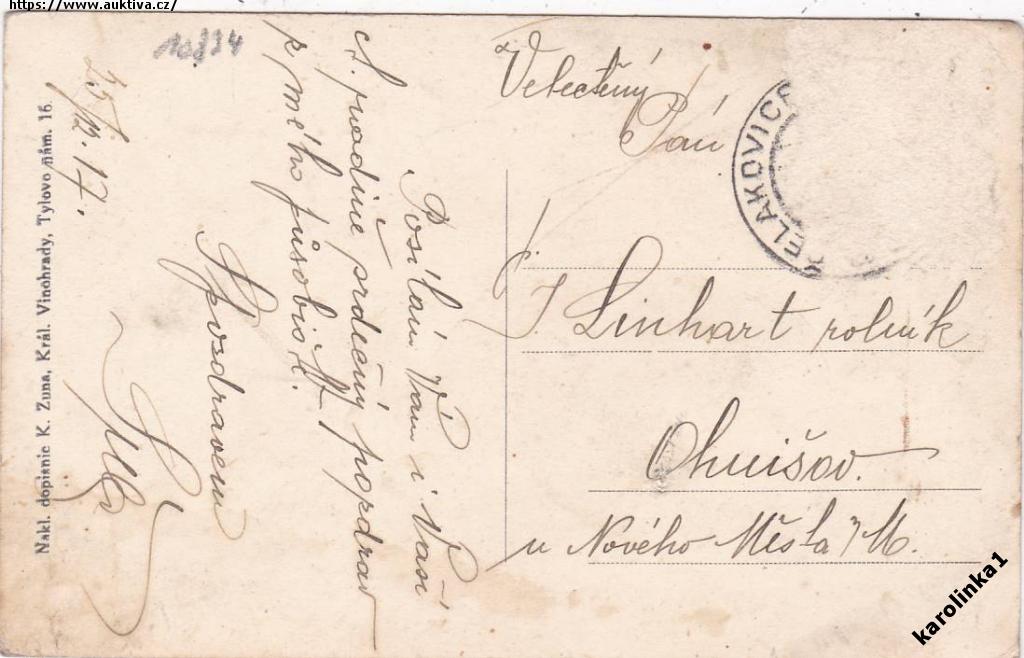 https://www.auktiva.cz/
10834
25/12.17.
Posílám Vám i Vaší
ct. rodině srdečný pozdrav
z mého působiště.
S pozdravem
Nakl. dopisnic K. Zuna, Král. Vinohrady, Tylovo nám. 16.
Velectěný
Pán
ELAKOVICE
J. Linhart rolník
Ohnišov.
u Nového Města n/M.
karolinka1